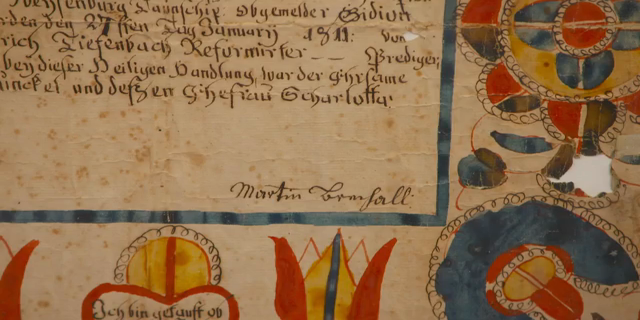 Taunschip. Obgemelder Sidion
den 27ſten Tag January 1811: von
rich Tiefenbach Reformirter — Prediger,
bey dieser Heiligen Handlung, war der Ehrſame
unckel, und deßen Ehefrau Scharlotta.
Martin Brechall
Ich bin getauft ob